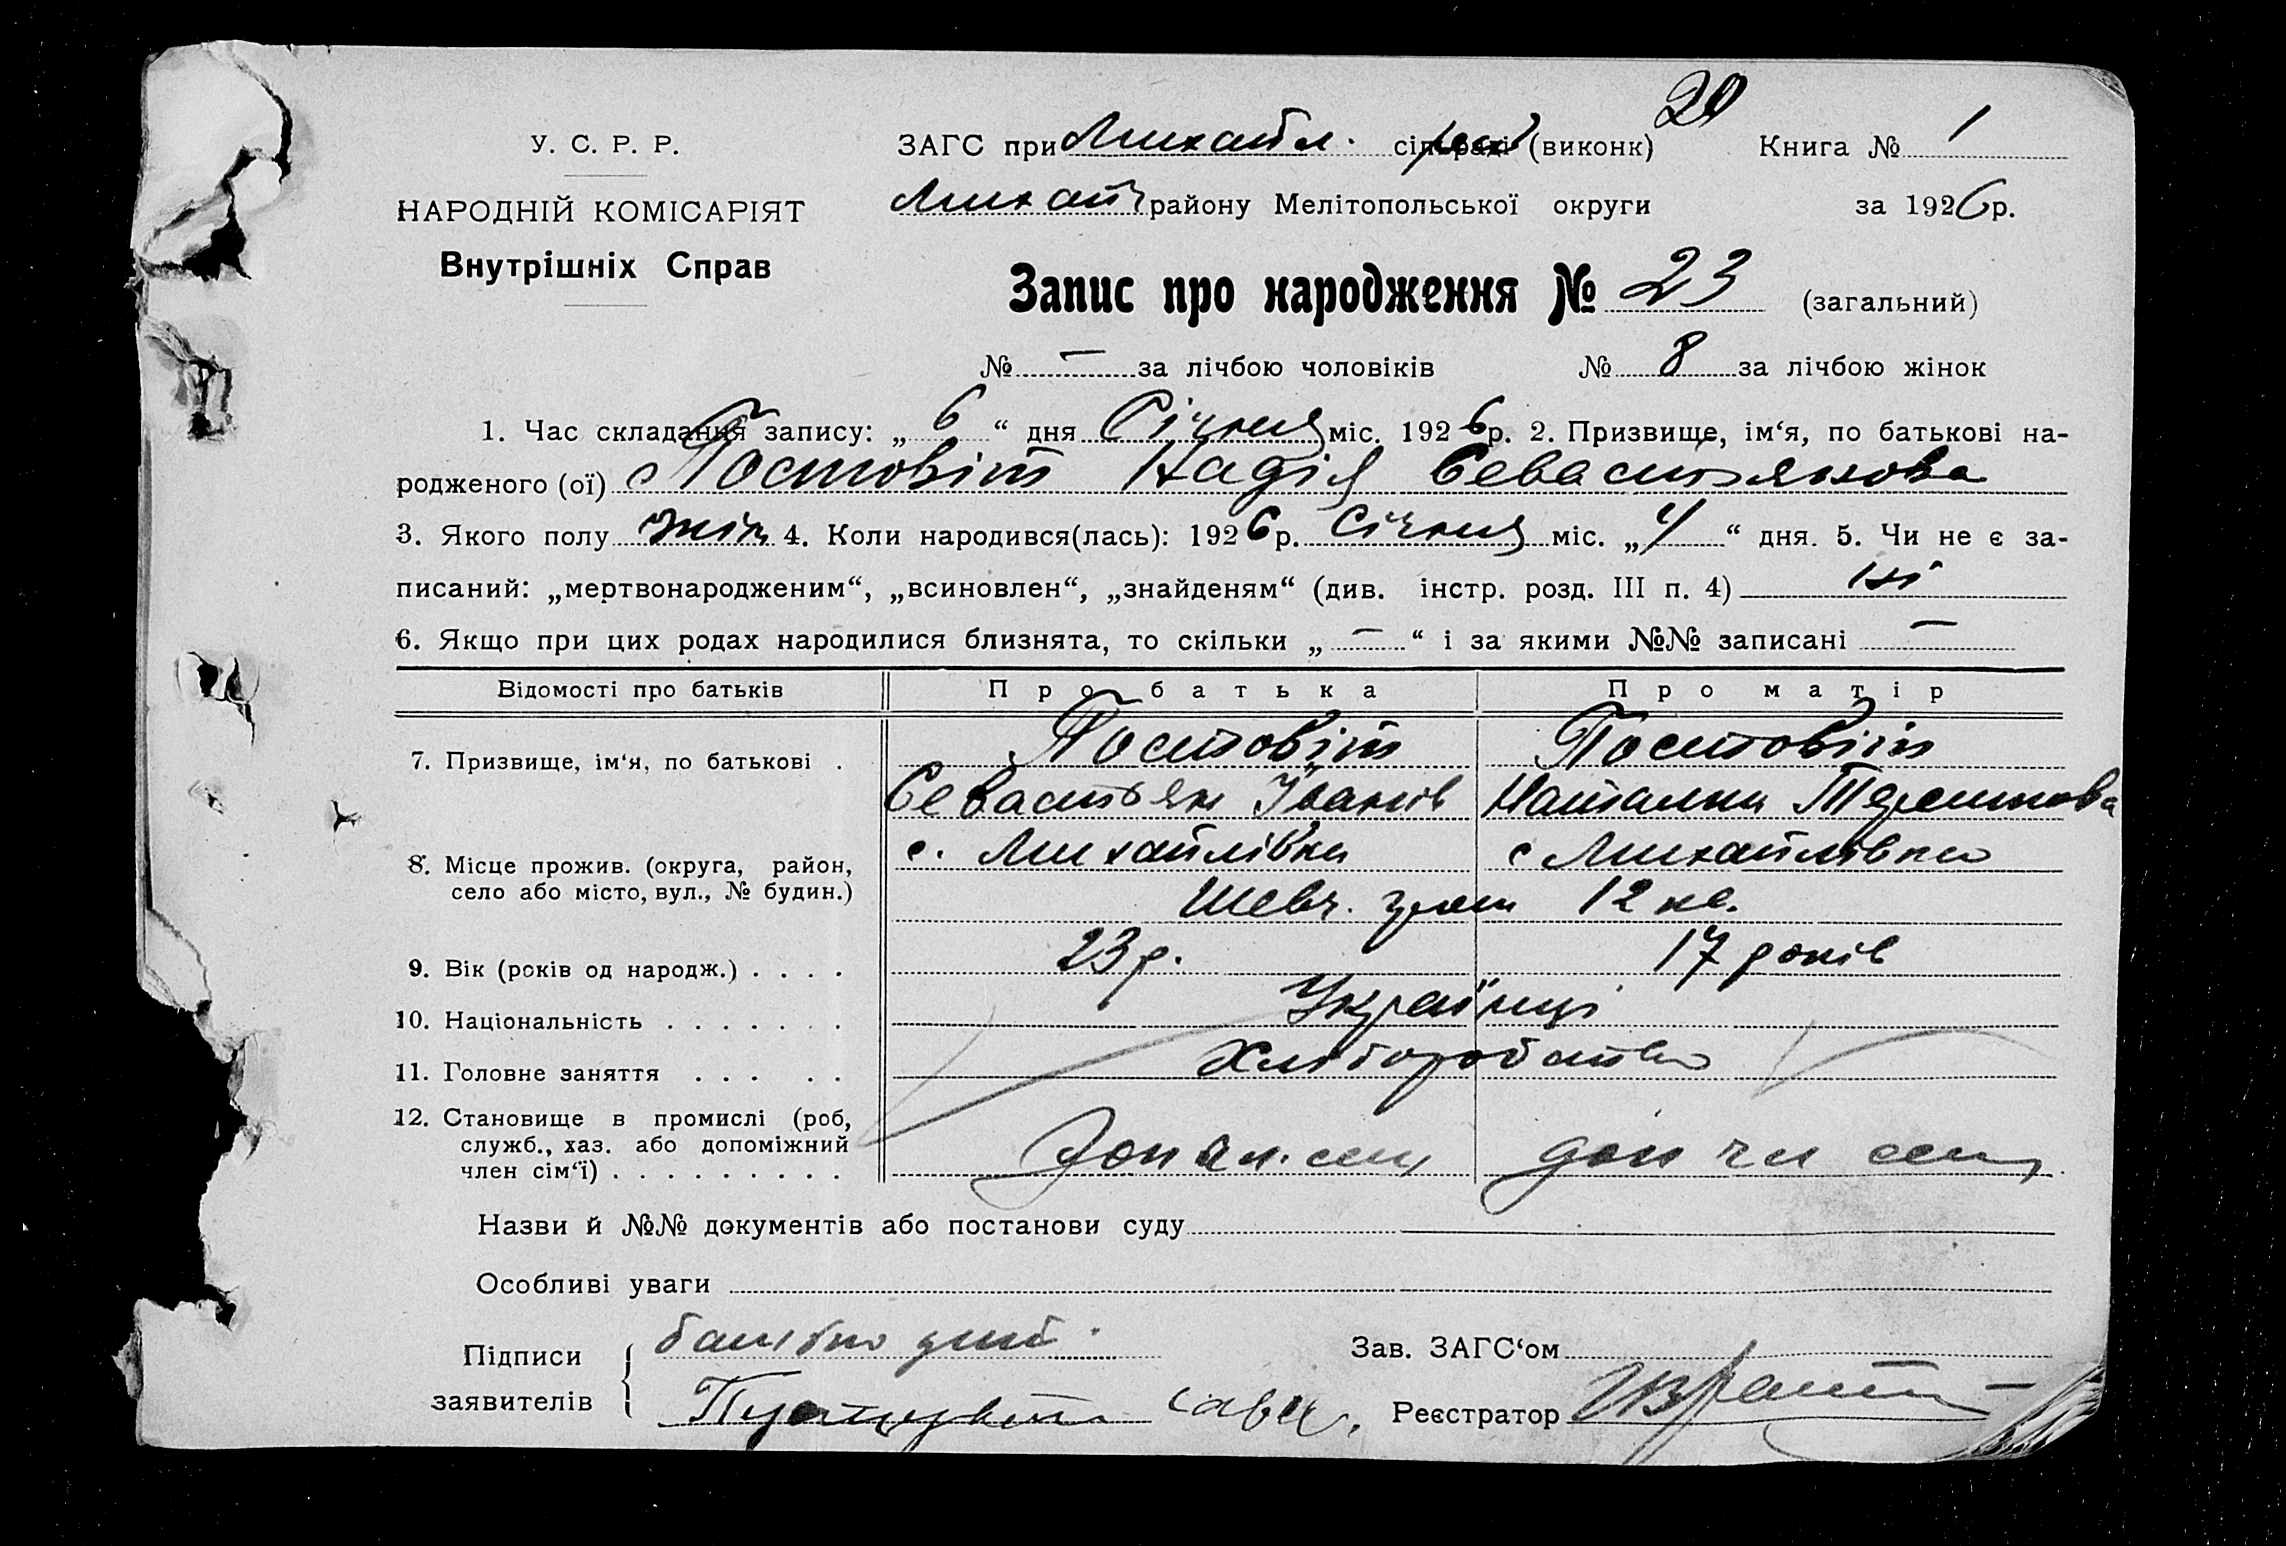 20
У. С. Р. Р.
НАРОДНІЙ КОМІСАРІЯТ
Внутрішніх Справ
ЗАГС при Михайл. сільраді (виконк) Книга № 1
Михай району Мелітопольської округи за 1926 р.
Запис про народження № 23 (загальний)
№ — за лічбою чоловіків № 8 за лічбою жінок
1. Час складання запису: „ 6 “ дня Січня міс. 1926 р. 2. Призвище, ім‘я, по батькові на-
родженого (ої) Постовіт Надія Севастьянова
3. Якого полу жін 4. Коли народився(лась): 1926 р. Січня міс. „ 4 “ дня. 5. Чи не є за-
писаний: „мертвонародженим“, „всиновлен“, „знайденям“ (див. інстр. розд. III п. 4) ні
6. Якщо при цих родах народилися близнята, то скільки „ — “ і за якими №№ записані —
Відомості про батьків Про батька Про матір
7. Призвище, ім‘я, по батькові . Постовіт Постовіт
Севастьян Іванів Наталка
8. Місце прожив. (округа, район, с. Михайлівка с Михайлівка
село або місто, вул., № будин.) Шевч. 12 кв.
9. Вік (років од народж.) . . . . 23 р. 17 років
10. Національність . . . . . . . Українці
11. Головне заняття . . . . . Хліборобство
12. Становище в промислі (роб,
служб., хаз. або допоміжний
член сім‘ї) . . . . . . . . . доп чл. сем доп чл сем
Назви й №№ документів або постанови суду
Особливі уваги
Підписи батько Зав. ЗАГС‘ом
заявителів Реєстратор